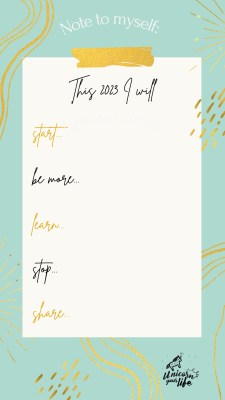 Note to myself:
This 2023 I will
start...
be more...
learn...
stop...
share...
Unicorn
your life